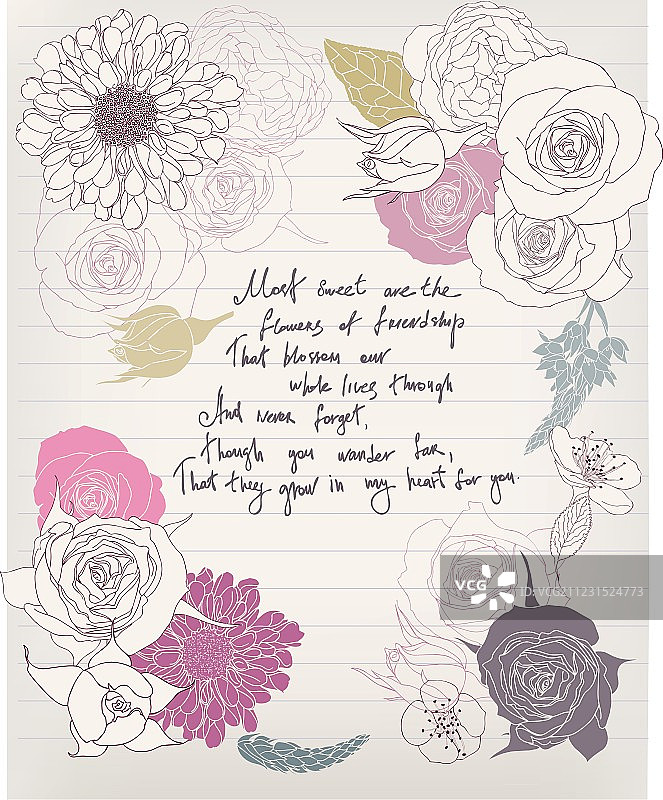 Most sweet are the
flowers of friendship
That blossom our
whole lives through
And never forget,
though you wander far,
That they grow in my heart for you.
VCG
ID:VCG211231524773